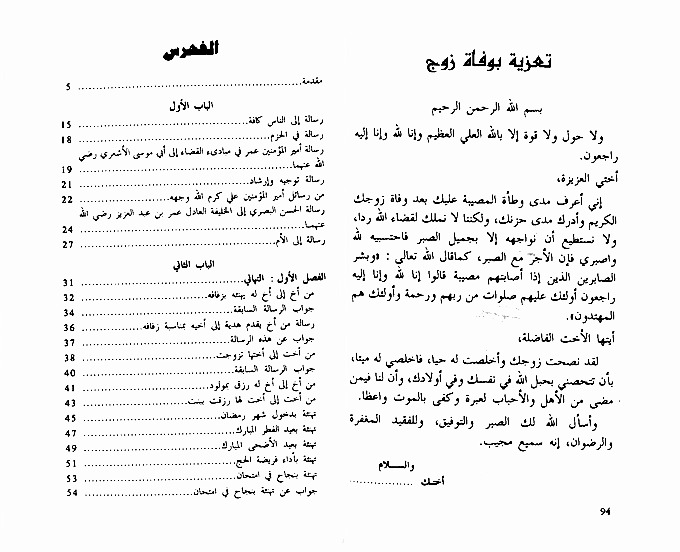 تعزية بوفاة زوج
بسم الله الرحمن الرحيم
ولا حول ولا قوة إلا بالله العلي العظيم وإنا لله وإنا إليه
راجعون.
أختي العزيزة،
إني أعرف مدى وطأة المصيبة عليك بعد وفاة زوجك
الكريم وأدرك مدى حزنك، ولكننا لا نملك لقضاء الله ردا،
ولا نستطيع أن نواجهه إلا بجميل الصبر فاحتسبيه لله
واصبري فإن الأجر مع الصبر، كماقال الله تعالى : «وبشر
الصابرين الذين إذا أصابتهم مصيبة قالوا إنا لله وإنا إليه
راجعون أولئك عليهم صلوات من ربهم ورحمة وأولئك هم
المهتدون».
أيتها الأخت الفاضلة،
لقد نصحت زوجك وأخلصت له حيا، فاخلصي له ميتا،
بأن تتحصني بحبل الله في نفسك وفي أولادك، وأن لنا فيمن
مضى من الأهل والأحباب لعبرة وكفى بالموت واعظا.
وأسأل الله لك الصبر والتوفيق، وللفقيد المغفرة
والرضوان، إنه سميع مجيب.
والسلام
أختك ................
94
الفهرس
مقدمة ................ 5
الباب الأول
رسالة إلى الناس كافة ................ 15
رسالة في الحزم ................ 18
رسالة أمير المؤمنين عمر في مبادىء القضاء إلى أبي موسى الأشعري رضي
الله عنهما ................ 19
رسالة توجيه وإرشاد ................ 21
من رسائل أمير المؤمنين علي كرم الله وجهه ................ 22
رسالة الحسن البصري إلى الخليفة العادل عمر بن عبد العزيز رضي الله
عنهما ................ 24
رسالة إلى الأم ................ 27
الباب الثاني
الفصل الأول : التهاني ................ 31
من أخ إلى أخ له يهنئه بزفافه ................ 32
جواب الرسالة السابقة ................ 34
رسالة من أخ يقدم هدية إلى أخيه بمناسبة زفافه ................ 36
جواب عن هذه الرسالة ................ 37
من أخت إلى أختها تزوجت ................ 38
جواب الرسالة السابقة ................ 40
من أخ إلى أخ له رزق بمولود ................ 41
من أخت إلى أخت لها رزقت ببنت ................ 43
تهنئة بدخول شهر رمضان ................ 45
تهنئة بعيد الفطر المبارك ................ 47
تهنئة بعيد الأضحى المبارك ................ 49
تهنئة بأداء فريضة الحج ................ 51
تهنئة بنجاح في امتحان ................ 53
جواب عن تهنئة بنجاح في امتحان ................ 54